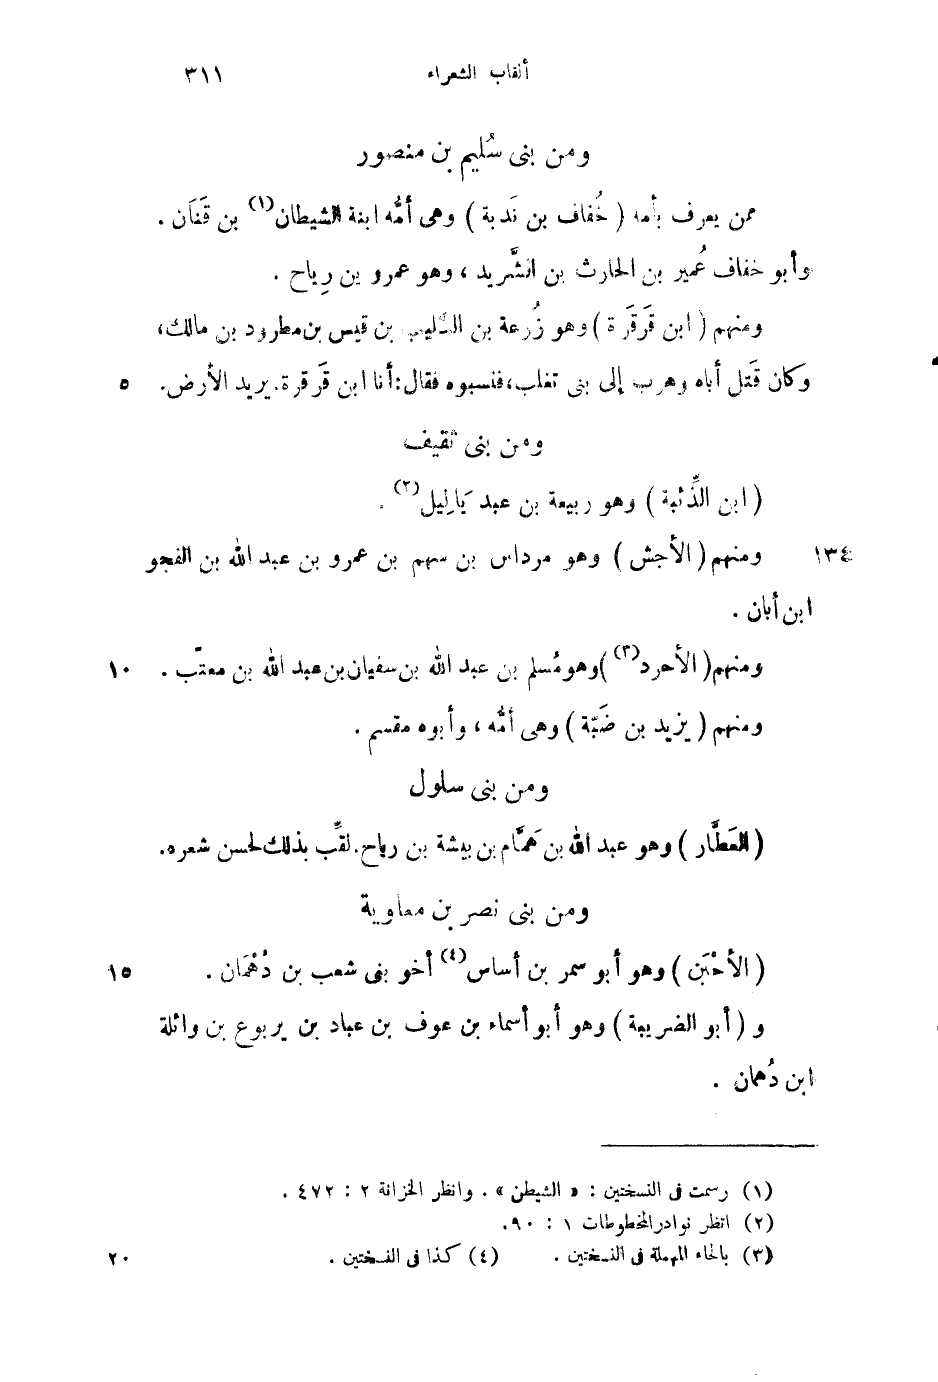 ألقاب الشعراء ٣١١
ومن بنى سُليم بن منصور
ممن يعرف بأمه ( خُفاف بن نَدبة ) وهى أمُّه ابنة الشيطان(١) بن قَنَان .
وأبو خفاف عُمير بن الحارث بن الشَّريد ، وهو عمرو بن رِياح .
ومنهم ( ابن قَرقَرة ) وهو زُرعة بن السَّليب بن قيس بن مطرود بن مالك،
وكان قَتل أباه وهرب إلى بنى تغلب، فنسبوه فقال: أنا ابن قَرقرة. يريد الأرض. ٥
ومن بنى ثقيف
( ابن الذِّئبة ) وهو ربيعة بن عبد يَالِيل(٢) .
ومنهم ( الأجش ) وهو مرداس بن سهم بن عمرو بن عبد الله بن الفجو ١٣٤
ابن أبان .
ومنهم ( الأحرد(٣) ) وهو مُسلم بن عبد الله بن سفيان بن عبد الله بن معتّب . ١٠
ومنهم ( يزيد بن ضَبّة ) وهى أمُّه ، وأبوه مقسم .
ومن بنى سلول
( العَطَّار ) وهو عبد الله بن هَمَّام بن بيشة بن رياح. لقِّب بذلك لحسن شعره.
ومن بنى نصر بن معاوية
( الأحْبَن ) وهو أبو سمر بن أساس(٤) أخو بنى شعب بن دُهْمَان . ١٥
و ( أبو الضريبة ) وهو أبو أسماء بن عوف بن عباد بن يربوع بن واثلة
ابن دُهمان .
(١) رسمت فى النسختين : « الشيطن » . وانظر الخزانة ٢ : ٤٧٢ .
(٢) انظر نوادر المخطوطات ١ : ٩٠.
(٣) بالحاء المهملة فى النسختين . (٤) كذا فى النسختين . ٢٠